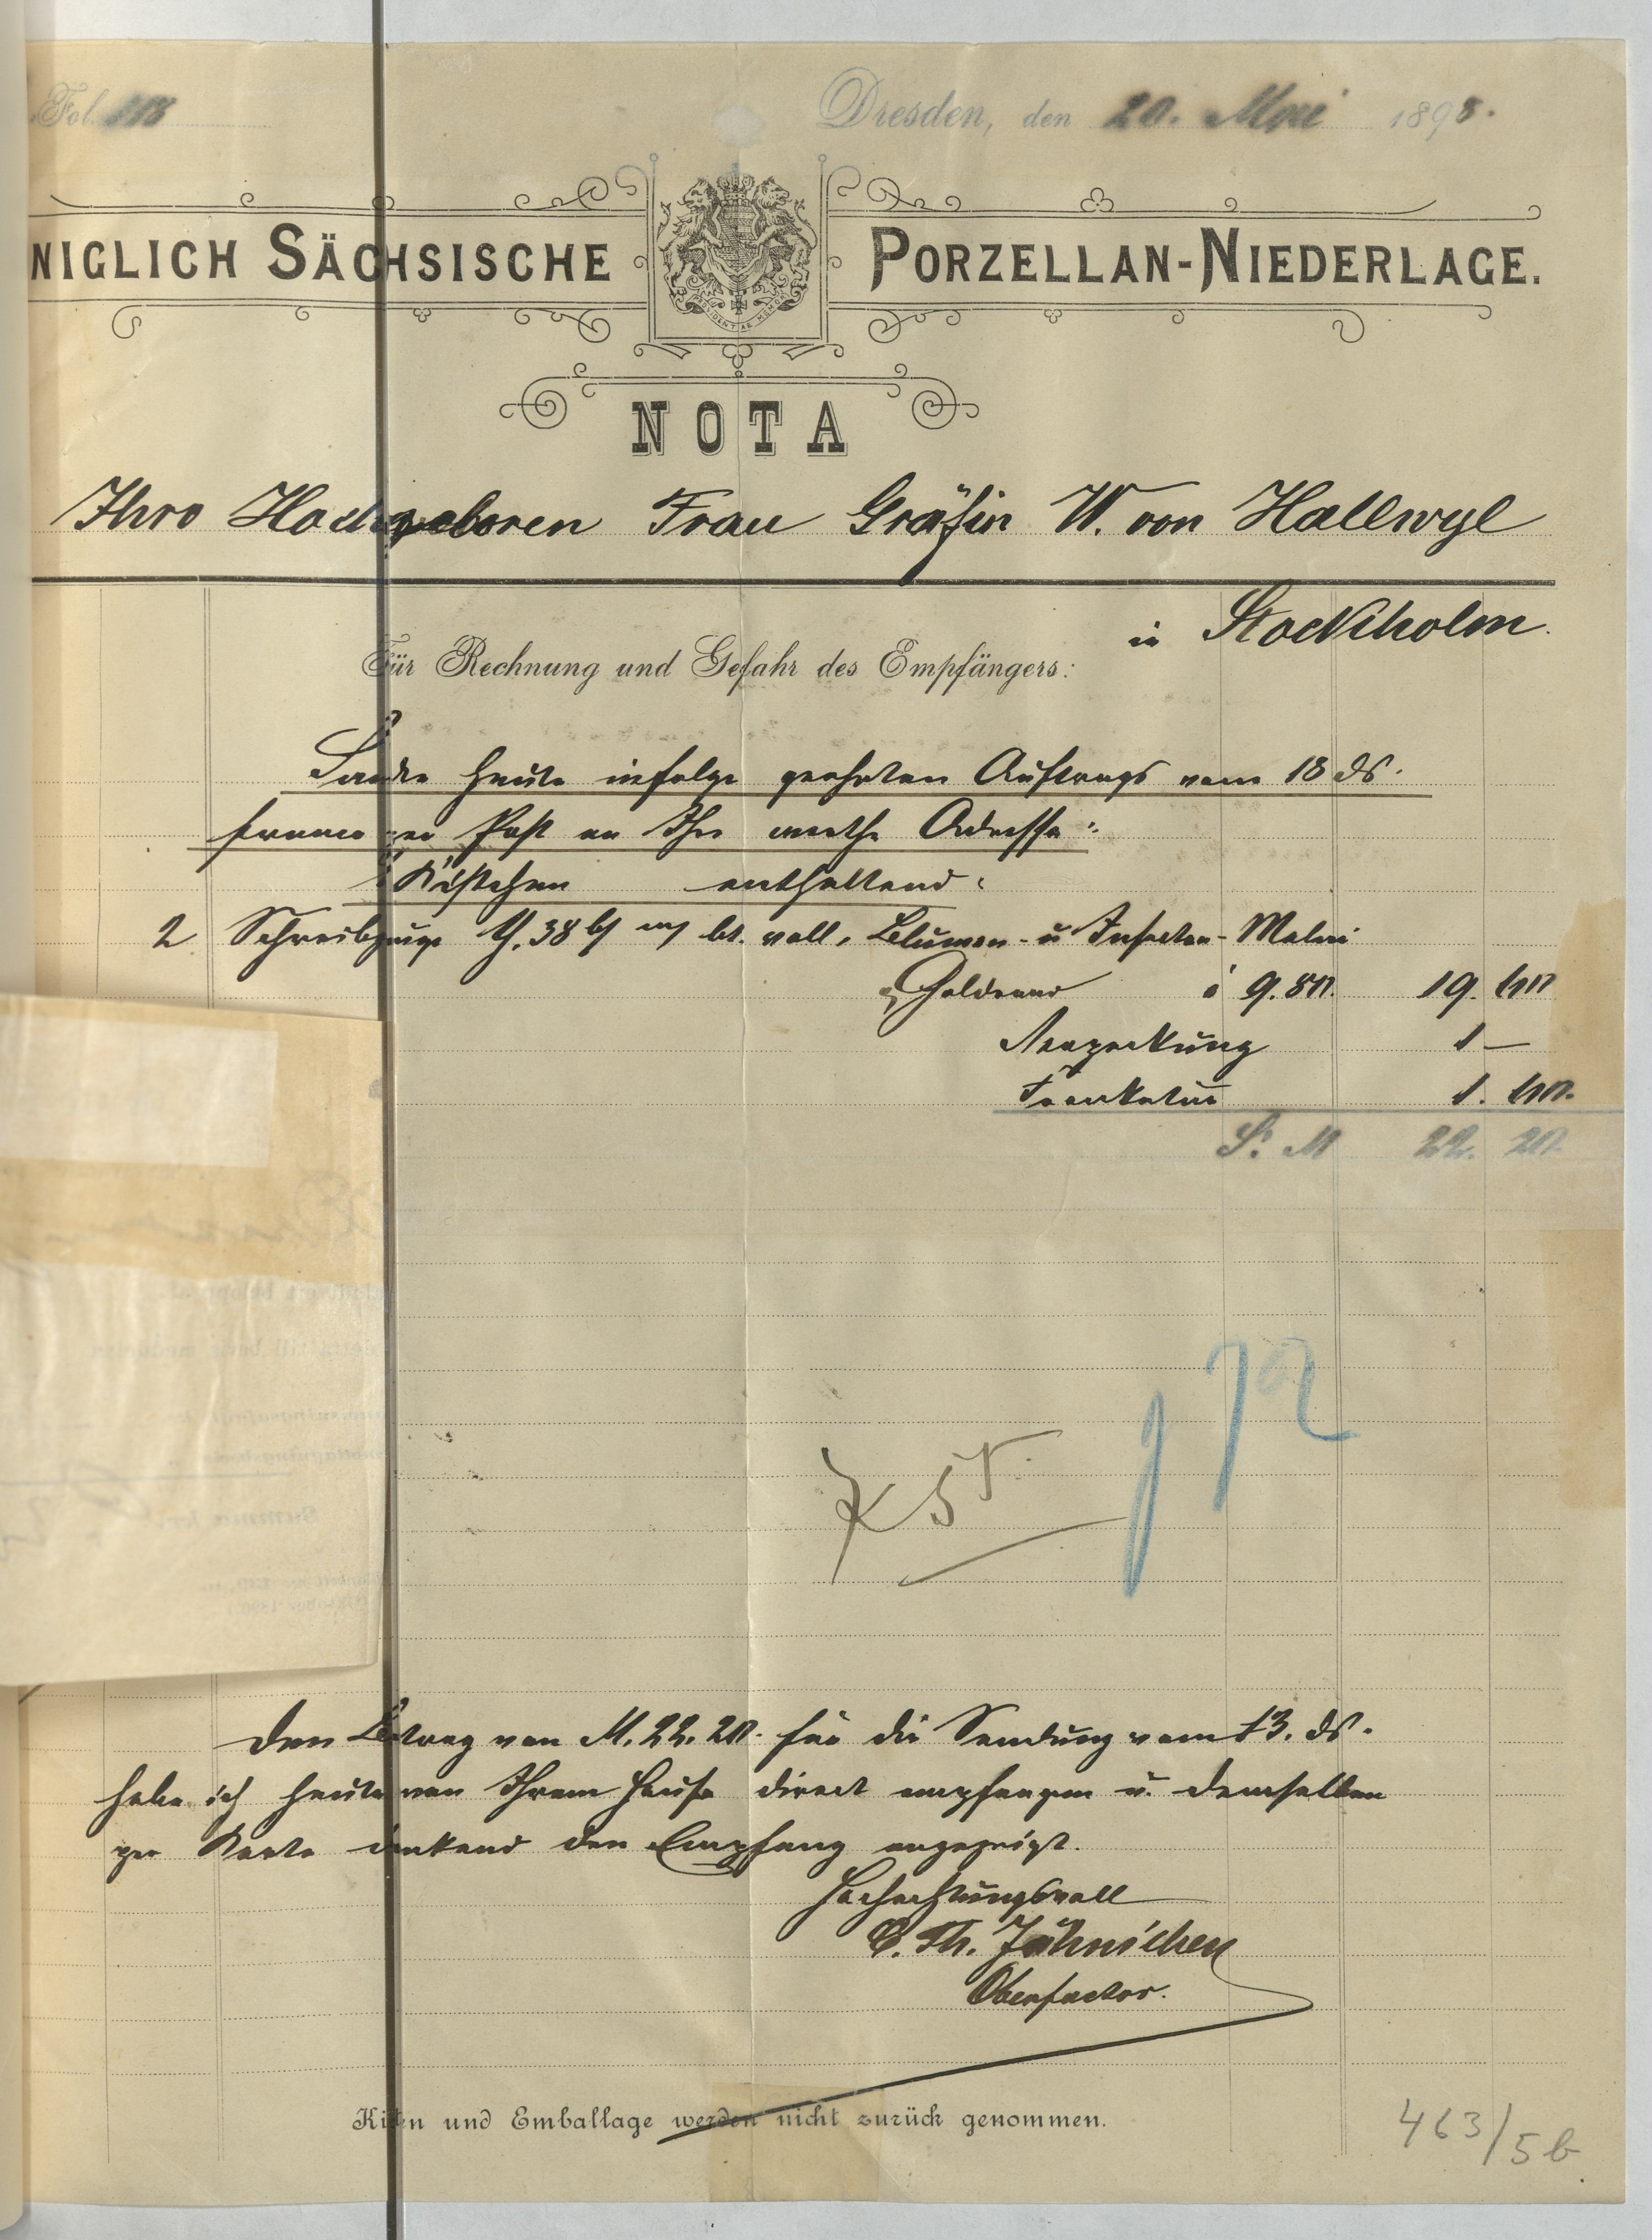 Fol.
Dresden, den 20. Mai 1898.
NIGLICH SÄCHSISCHE PORZELLAN-NIEDERLAGE.
PROVIDENTIAE MEMOR
NOTA
Ihro Hochgeboren Frau Gräfin W. von Hallwyl
in Stockholm.
Für Rechnung und Gefahr des Empfängers:
Sandte heute infolge geehrten Auftrags vom 18 ds.
franco per Post an Ihre werthe Adresse:
1 Kistchen enthaltend:
2 Schreibzeuge bt. voll, Blumen- u Insecten-Malerei
Goldrand à 9.80. 19. 60
Verpackung 1 —
Frankatur 1. 60.
S. M 22. 20.
K 55.
Den Betrag von M. 22. 20. für die Sendung vom 13. ds.
habe ich heute von Ihrem Hause direct empfangen u. demselben
per Karte dankend den Empfang angezeigt.
Hochachtungsvoll
C. Th. Jähnichen
Oberfactor.
Kisten und Emballage werden nicht zurück genommen.
463/5b.